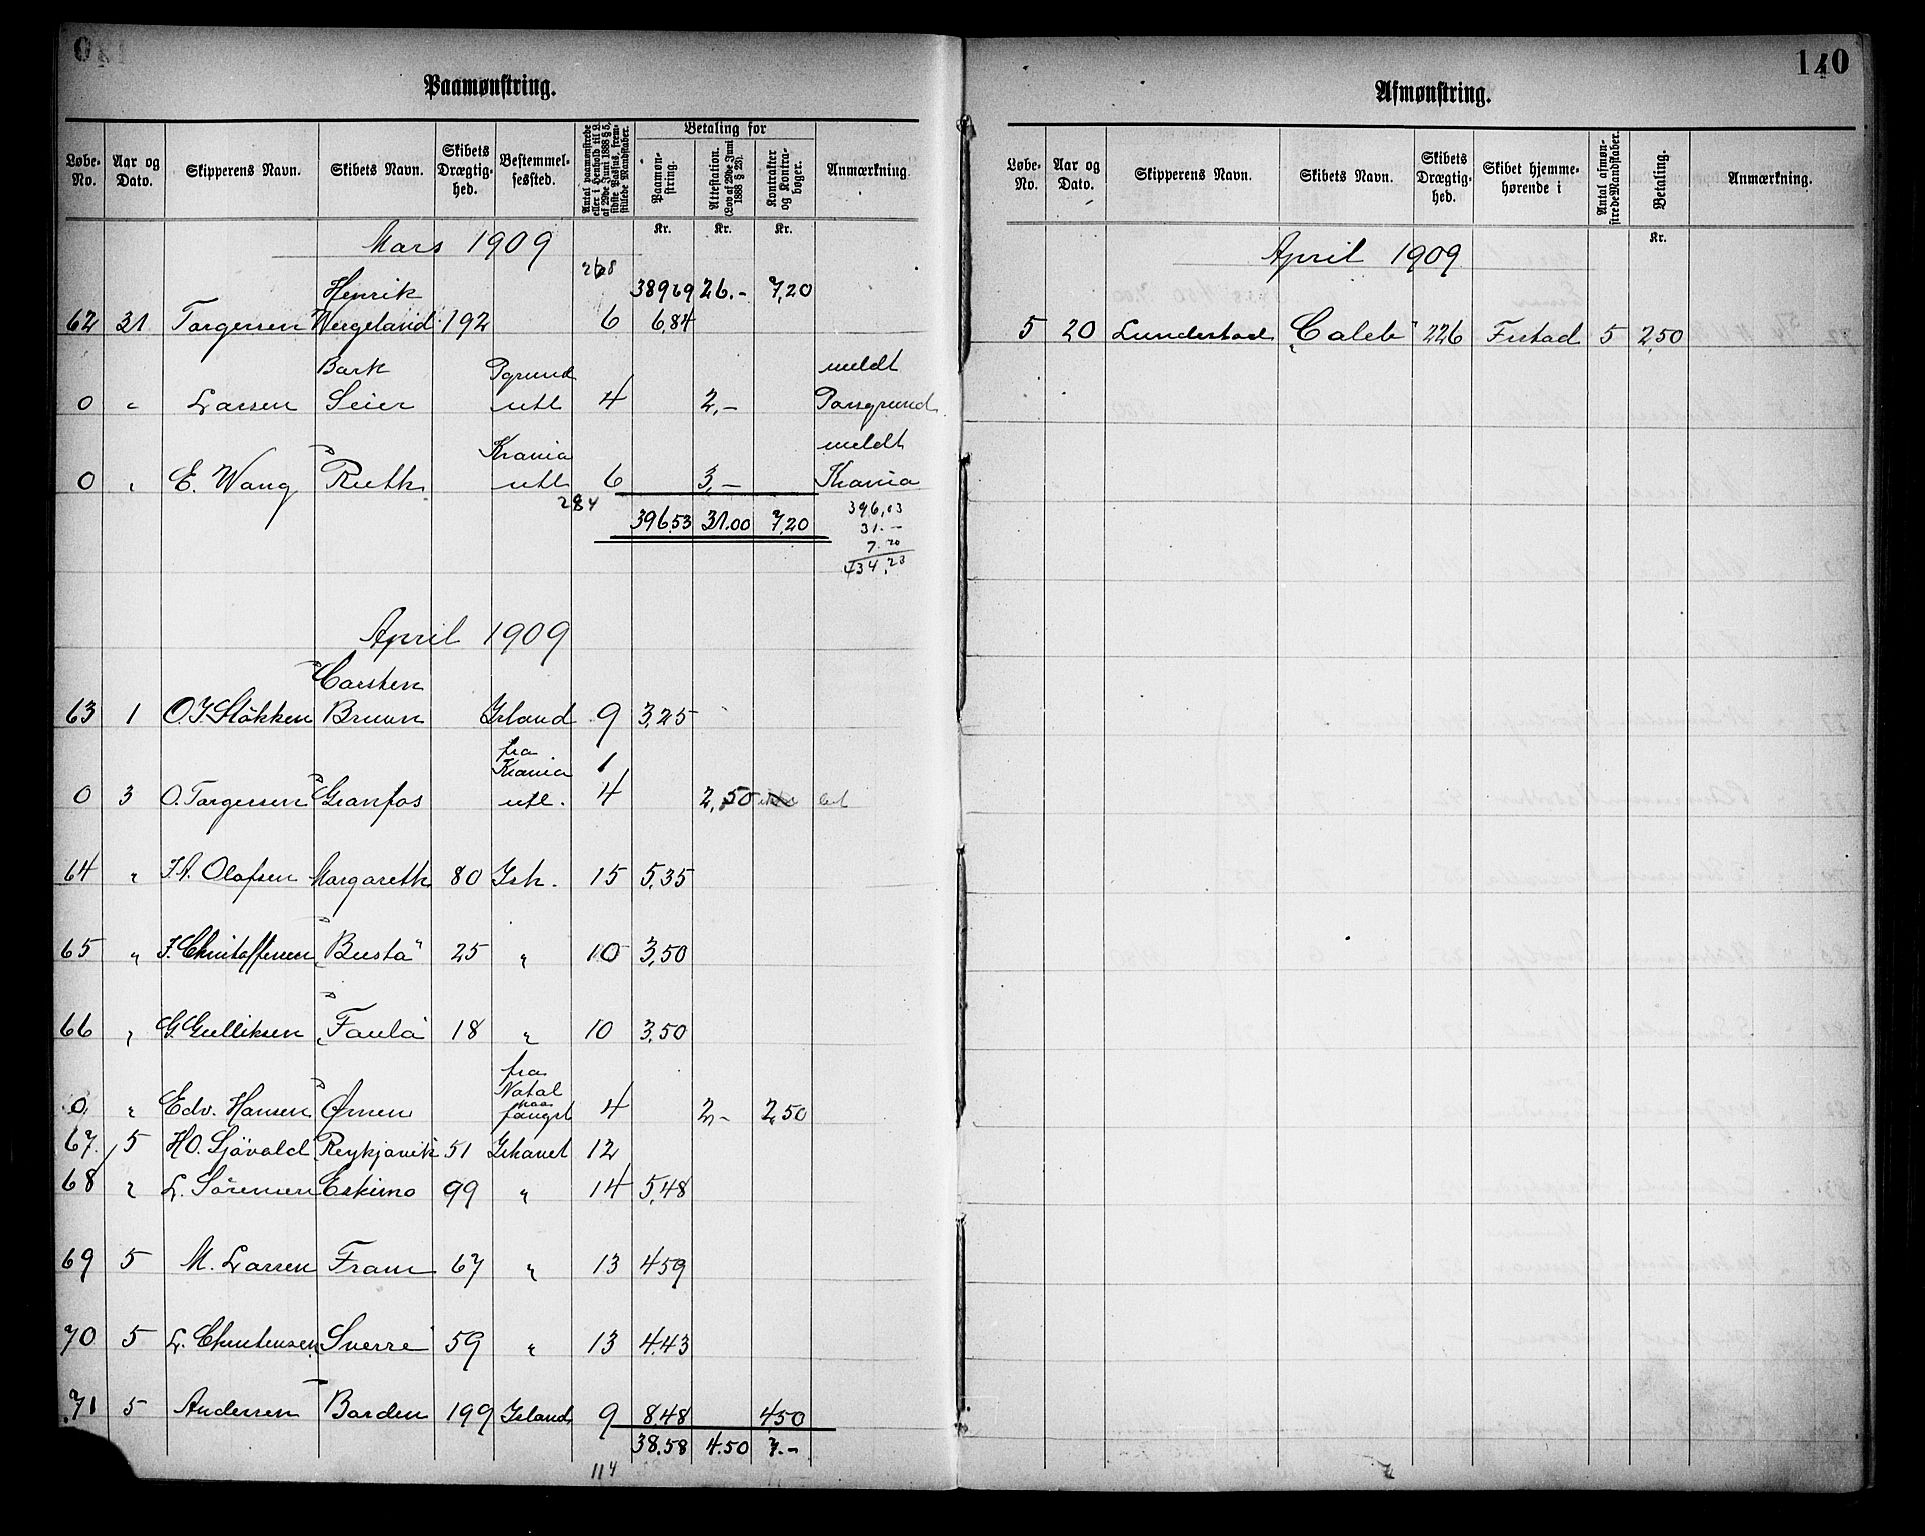 110
Paamønstring.
Løbe-No. Aar og Dato. Skipperens Navn. Skibets Navn. Skibets Drægtig-hed. Bestemmel-sessted. Antal paamønstrede eller i Henhold til L. af 29de Juni 1888 § 5, sidste Passus, frem-stillede Mandskaber. Betaling for Paamøn-string. Attestation. (Lov af 29de Juni 1888 § 23). Kontrakter og Kontra-bøger. Anmærkning.
Kr. Kr. Kr.
Mars 1909
268
Henrik 38969 26.- 7,20
62 31 Torgersen Wergeland 192 6 684
Bark Pgrund meldt
0 " Larsen Seier utl 4 2,- Porsgrund
Krania meldt
0 " E. Wang Ruth utl 6 3,- Krania
284
396.53 31.00 7,20
396,03
31.-
7.20
434,23
April 1909
Carsten
63 1 O J Stökken Bruun Island 9 3,25
fra
Krania 1
0 3 O. Torgersen Granfos utl. 4 2,50
64 " J.A. Olafsen Margareth 80 Ish. 15 5,35
65 " J. Christoffersen "Busta" 25 " 10 3,50
66 " G. Gulliksen "Faula" 18 " 10 3,50
fra
Natal
paa
0 " Edv. Hansen Ørnen fangst 4 2,- 2,50
67. 5 H O. Sjövold Reykjavik 51 Ishavet 12
68 " L. Sörensen Eskimo 99 " 14 5,48
69 5 M. Larsen Fram 67 " 13 4.59
70 5 L. Christensen Sverre 59 " 13 4.43
71 5 Andersen Barden 199 Island 9 8.48 4.50
38.58 4.50 7.-
114
110
Afmønstring.
Løbe-No. Aar og Dato. Skipperens Navn. Skibets Navn. Skibets Drægtig-hed. Skibet hjemme-hørende i Antal afmøn-strede Mandskaber. Betaling. Anmærkning.
Kr.
April 1909
5 20 Lunderstad "Caleb" 226 Frstad 5 2,50